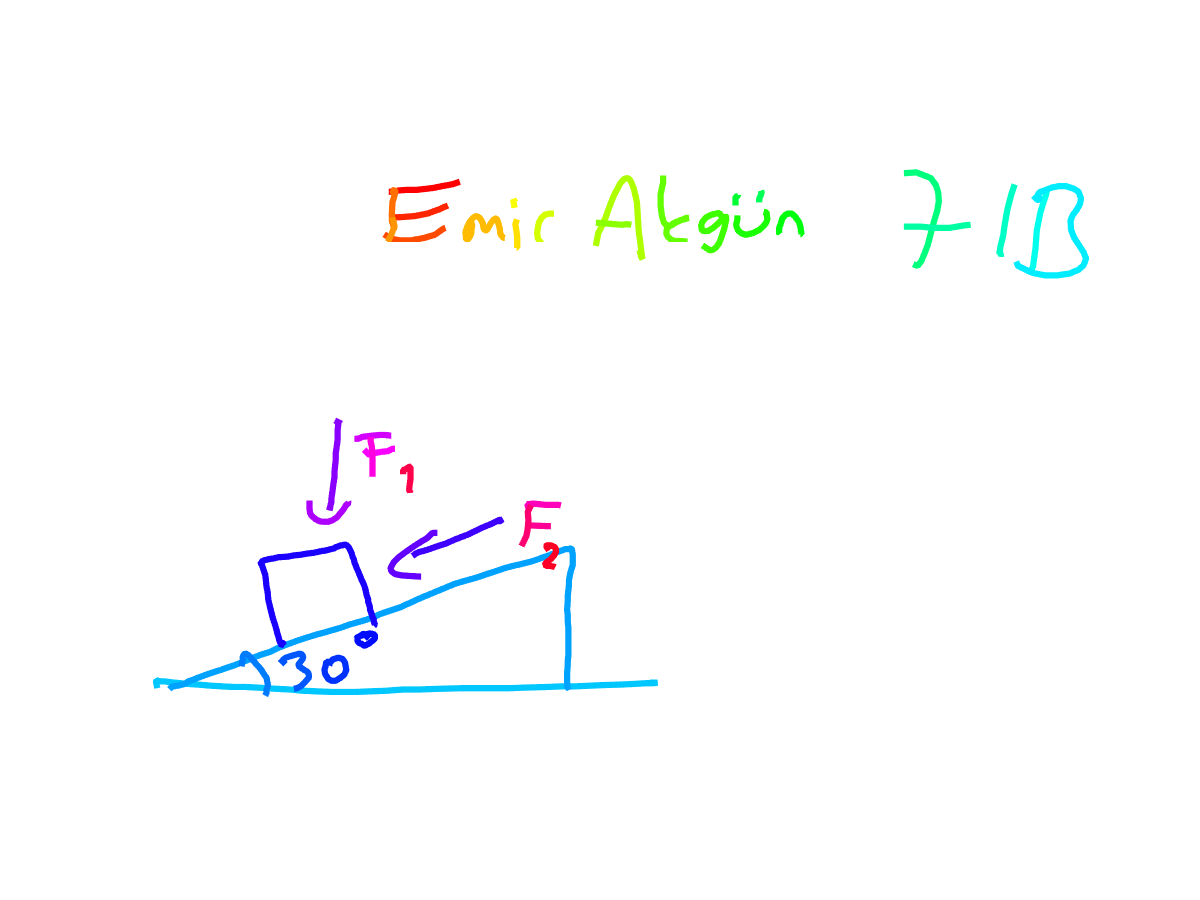 Emir Akgün 7/B
F1
F2
30°